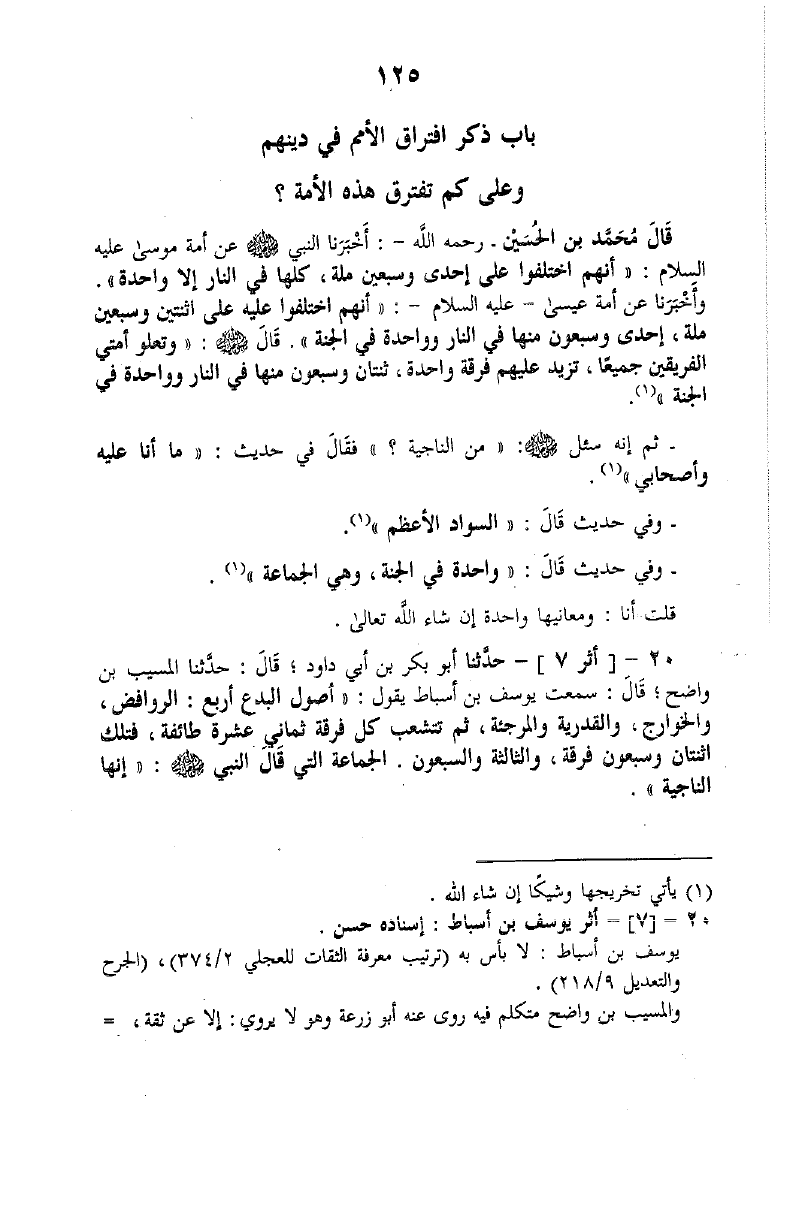 ١٢٥
باب ذكر افتراق الأمم في دينهم
وعلى كم تفترق هذه الأمة ؟
قَالَ مُحَمَّد بن الحُسَيْن ـ رحمه اللَّه – : أَخْبَرَنا النبي ﷺ عن أمة موسىٰ عليه
السلام : « أنهم اختلفوا على إحدى وسبعين ملة ، كلها في النار إلا واحدة» .
وأَخْبَرَنا عن أمة عيسىٰ – عليه السلام – : « أنهم اختلفوا عليه على اثنتين وسبعين
ملة ، إحدى وسبعون منها في النار وواحدة في الجنة » . قَالَ ﷺ : « وتعلو أمتي
الفريقين جميعًا ، تزيد عليهم فرقة واحدة ، ثنتان وسبعون منها في النار وواحدة في
الجنة »(١).
ـ ثم إنه سئل ﷺ: « من الناجية ؟ » فقَالَ في حديث : « ما أنا عليه
وأصحابي »(١) .
ـ وفي حديث قَالَ : « السواد الأعظم »(١).
ـ وفي حديث قَالَ : « واحدة في الجنة ، وهي الجماعة »(١) .
قلت أنا : ومعانيها واحدة إن شاء اللَّه تعالىٰ .
٢٠ – [ أثر ٧ ] – حدَّثنا أبو بكر بن أبي داود ؛ قَالَ : حدَّثنا المسيب بن
واضح ؛ قَالَ : سمعت يوسف بن أسباط يقول : « أصول البدع أربع : الروافض ،
والخوارج ، والقدرية والمرجئة ، ثم تتشعب كل فرقة ثماني عشرة طائفة ، فتلك
اثنتان وسبعون فرقة ، والثالثة والسبعون . الجماعة التي قَالَ النبي ﷺ : « إنها
الناجية » .
(١) يأتي تخريجها وشيكًا إن شاء الله .
٢٠ = [٧] = أثر يوسف بن أسباط : إسناده حسن .
يوسف بن أسباط : لا بأس به (ترتيب معرفة الثقات للعجلي ٣٧٤/٢) ، (الجرح
والتعديل ٢١٨/٩) .
والمسيب بن واضح متكلم فيه روى عنه أبو زرعة وهو لا يروي : إلا عن ثقة ، =